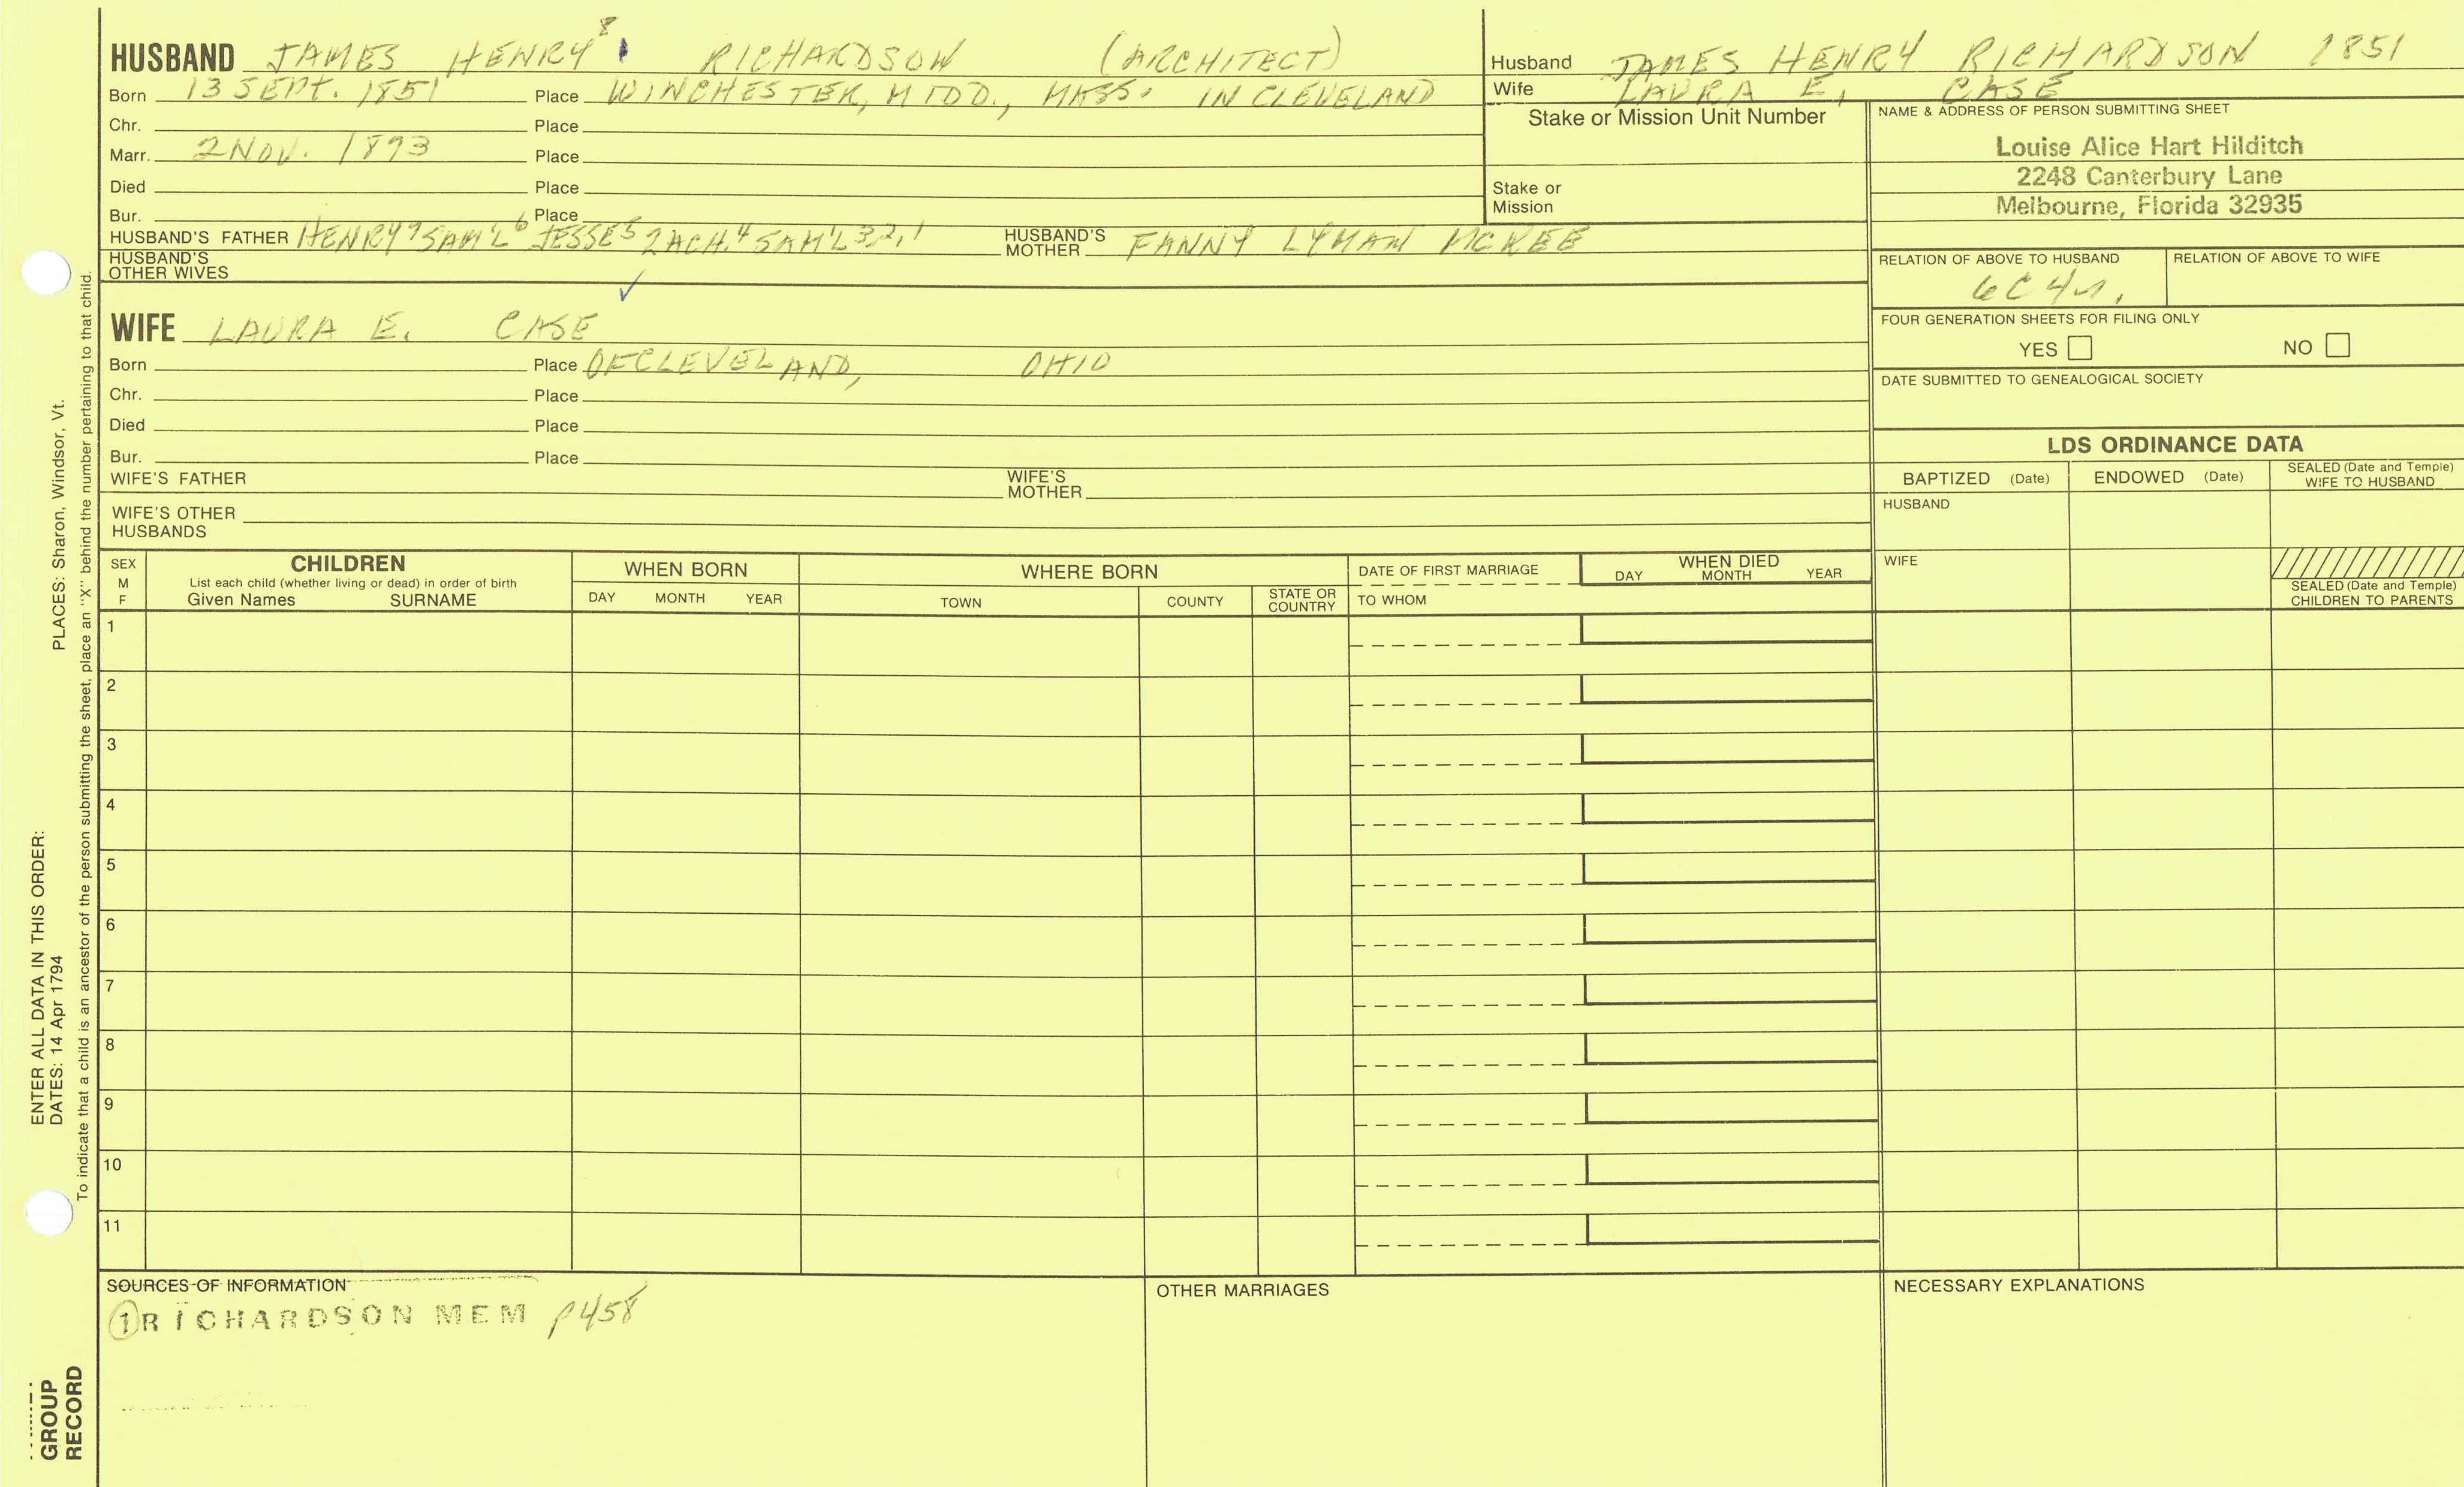 HUSBAND JAMES HENRY 8 RICHARDSON (ARCHITECT)
Born 13 SEPT. 1851 Place WINCHESTER, MIDD., MASS. IN CLEVELAND
Chr. Place
Marr. 2 NOV. 1893 Place
Died Place
Bur. Place
HUSBAND'S FATHER HENRY 7 SAM'L 6 JESSE 5 ZACH. 4 SAM'L 3,2,1 HUSBAND'S MOTHER FANNY LYMAN MCKEE
HUSBAND'S
OTHER WIVES
✓
WIFE LAURA E. CASE
Born Place OF CLEVELAND, OHIO
Chr. Place
Died Place
Bur. Place
WIFE'S FATHER WIFE'S MOTHER
WIFE'S OTHER
HUSBANDS
Husband JAMES HENRY RICHARDSON 1851
Wife LAURA E. CASE
Stake or Mission Unit Number
Stake or
Mission
NAME & ADDRESS OF PERSON SUBMITTING SHEET
Louise Alice Hart Hilditch
2248 Canterbury Lane
Melbourne, Florida 32935
RELATION OF ABOVE TO HUSBAND RELATION OF ABOVE TO WIFE
6C4r.
FOUR GENERATION SHEETS FOR FILING ONLY
YES NO
DATE SUBMITTED TO GENEALOGICAL SOCIETY
LDS ORDINANCE DATA
BAPTIZED (Date) ENDOWED (Date) SEALED (Date and Temple) WIFE TO HUSBAND
HUSBAND
WIFE
SEALED (Date and Temple)
CHILDREN TO PARENTS
SEX
M
F
CHILDREN
List each child (whether living or dead) in order of birth
Given Names SURNAME
WHEN BORN
DAY MONTH YEAR
WHERE BORN
TOWN COUNTY STATE OR COUNTRY
DATE OF FIRST MARRIAGE
TO WHOM
WHEN DIED
DAY MONTH YEAR
1
2
3
4
5
6
7
8
9
10
11
SOURCES OF INFORMATION
1 RICHARDSON MEM p458
OTHER MARRIAGES
NECESSARY EXPLANATIONS
ENTER ALL DATA IN THIS ORDER:
DATES: 14 Apr 1794 PLACES: Sharon, Windsor, Vt.
To indicate that a child is an ancestor of the person submitting the sheet, place an "X" behind the number pertaining to that child.
GROUP
RECORD